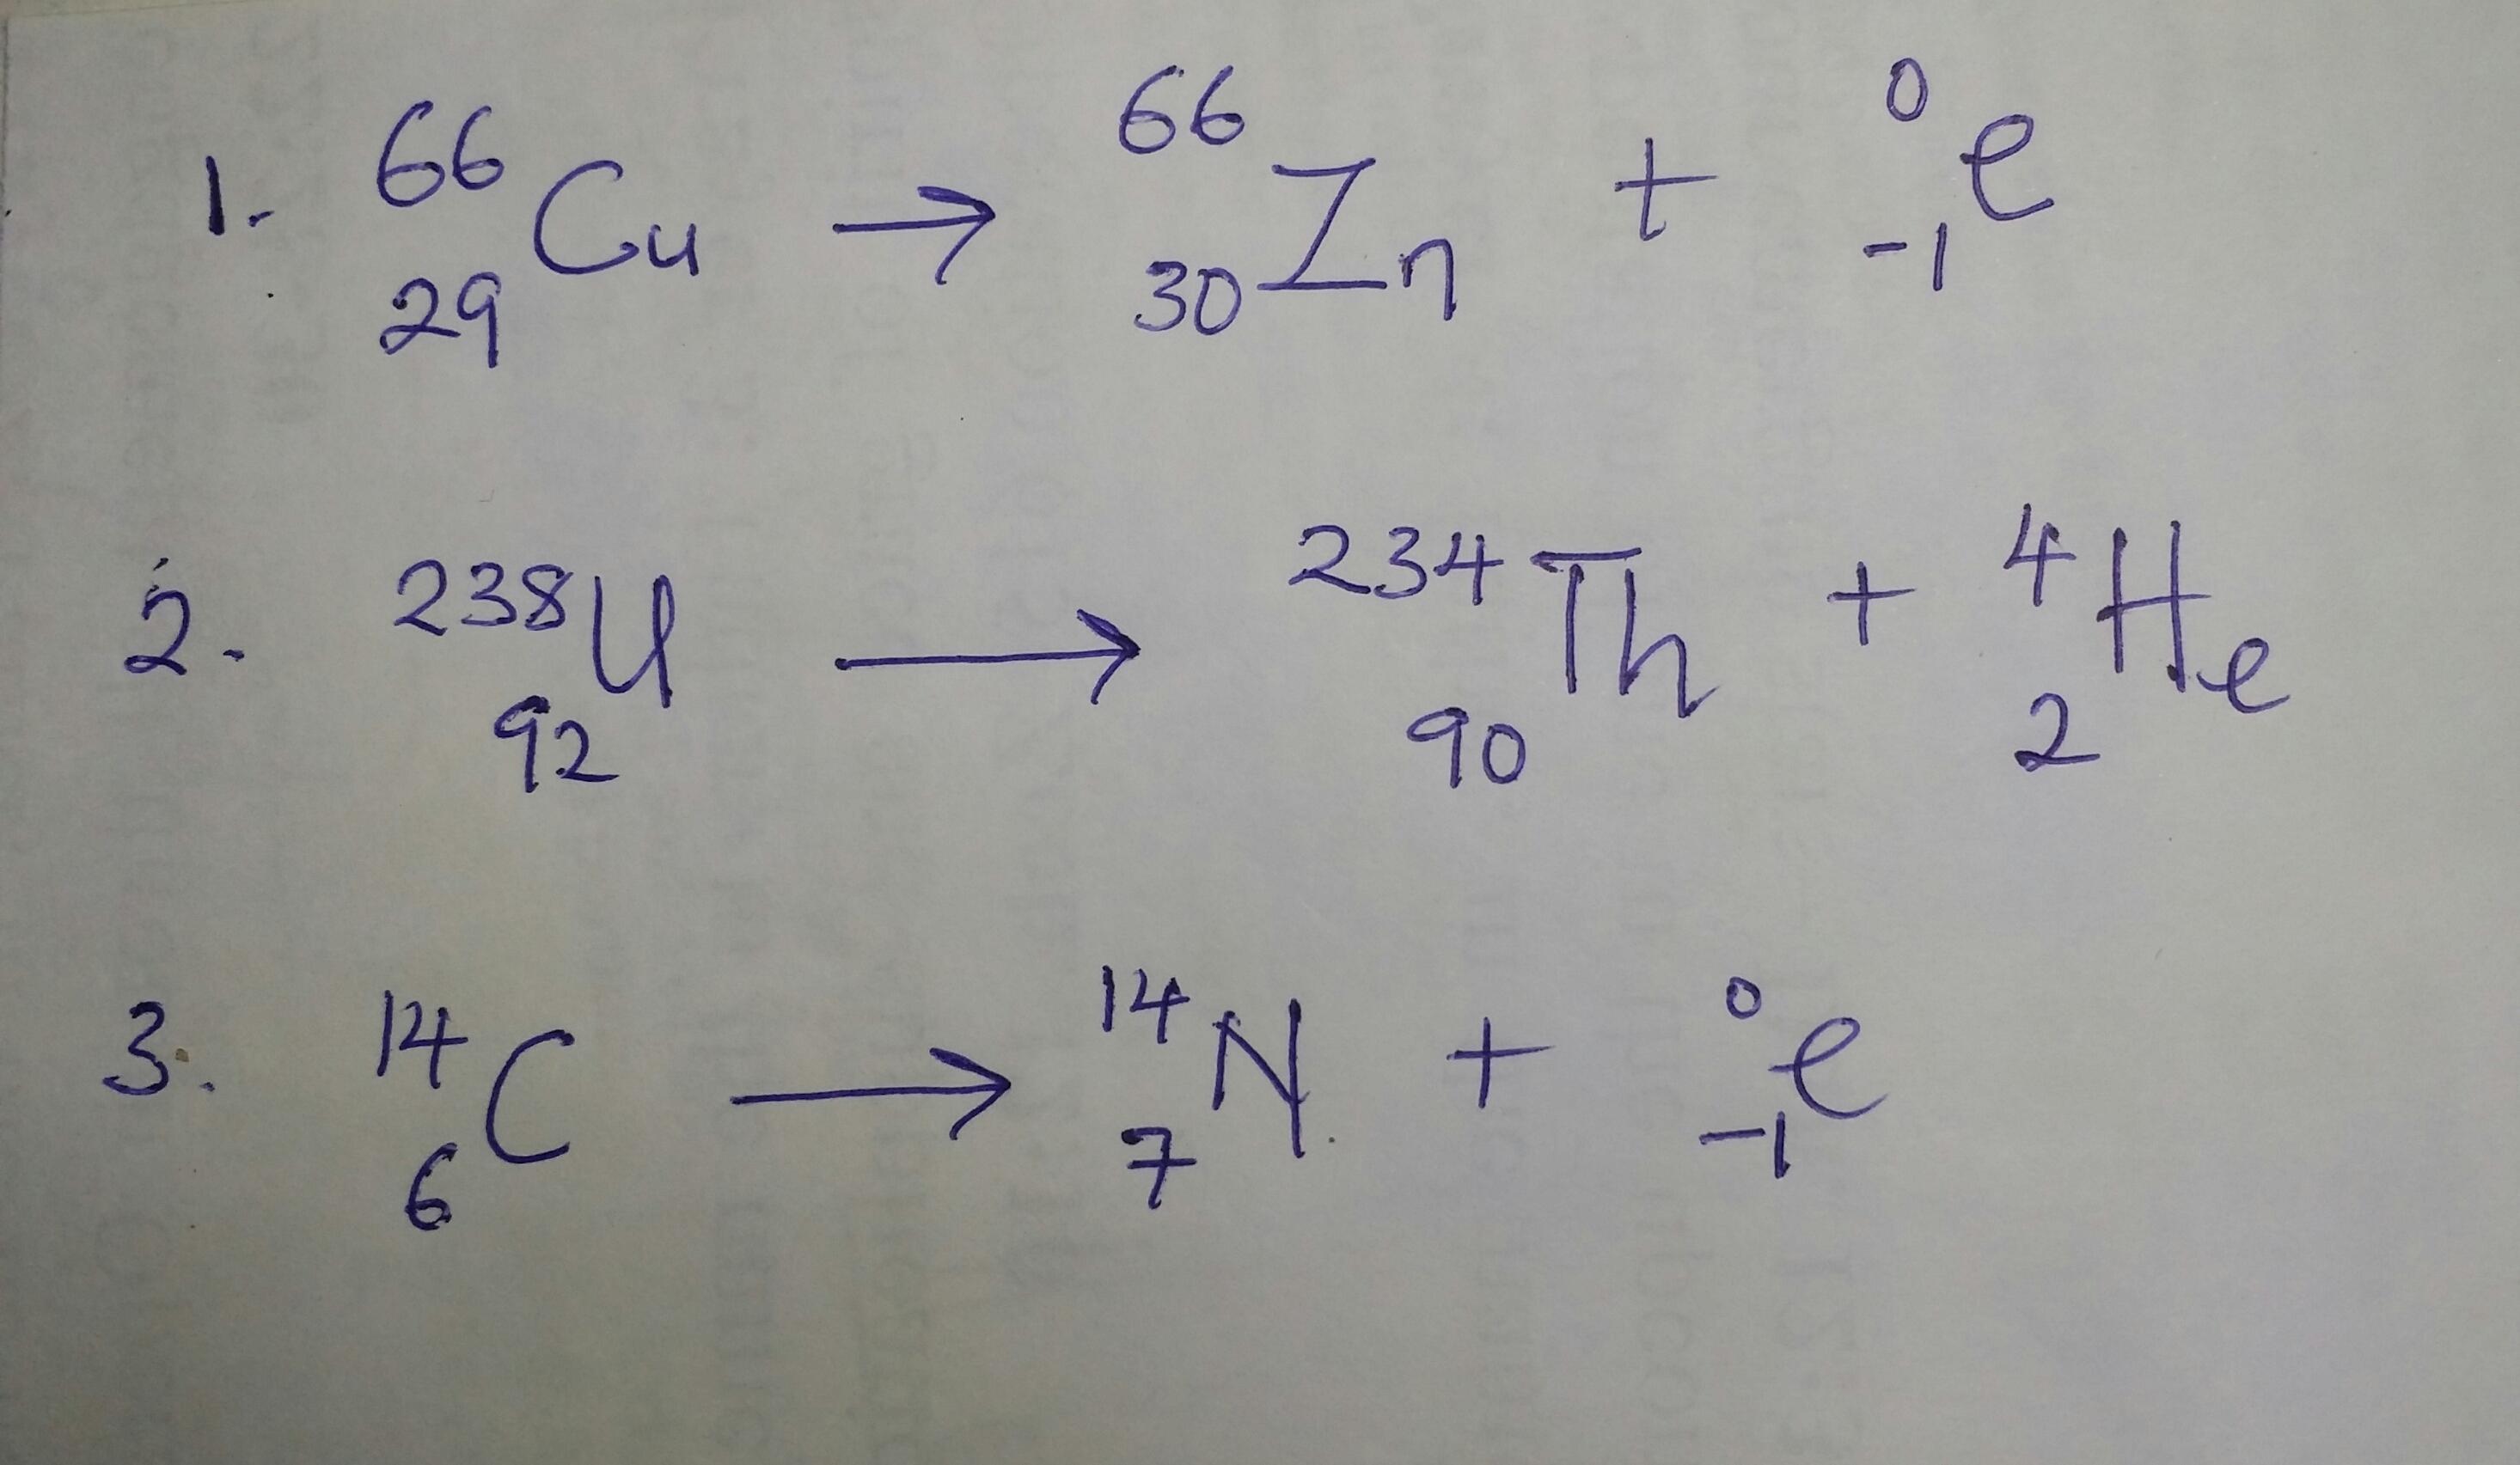 1. ⁶⁶₂₉Cu → ⁶⁶₃₀Zn + ⁰₋₁e
2. ²³⁸₉₂U → ²³⁴₉₀Th + ⁴₂He
3. ¹⁴₆C → ¹⁴₇N + ⁰₋₁e